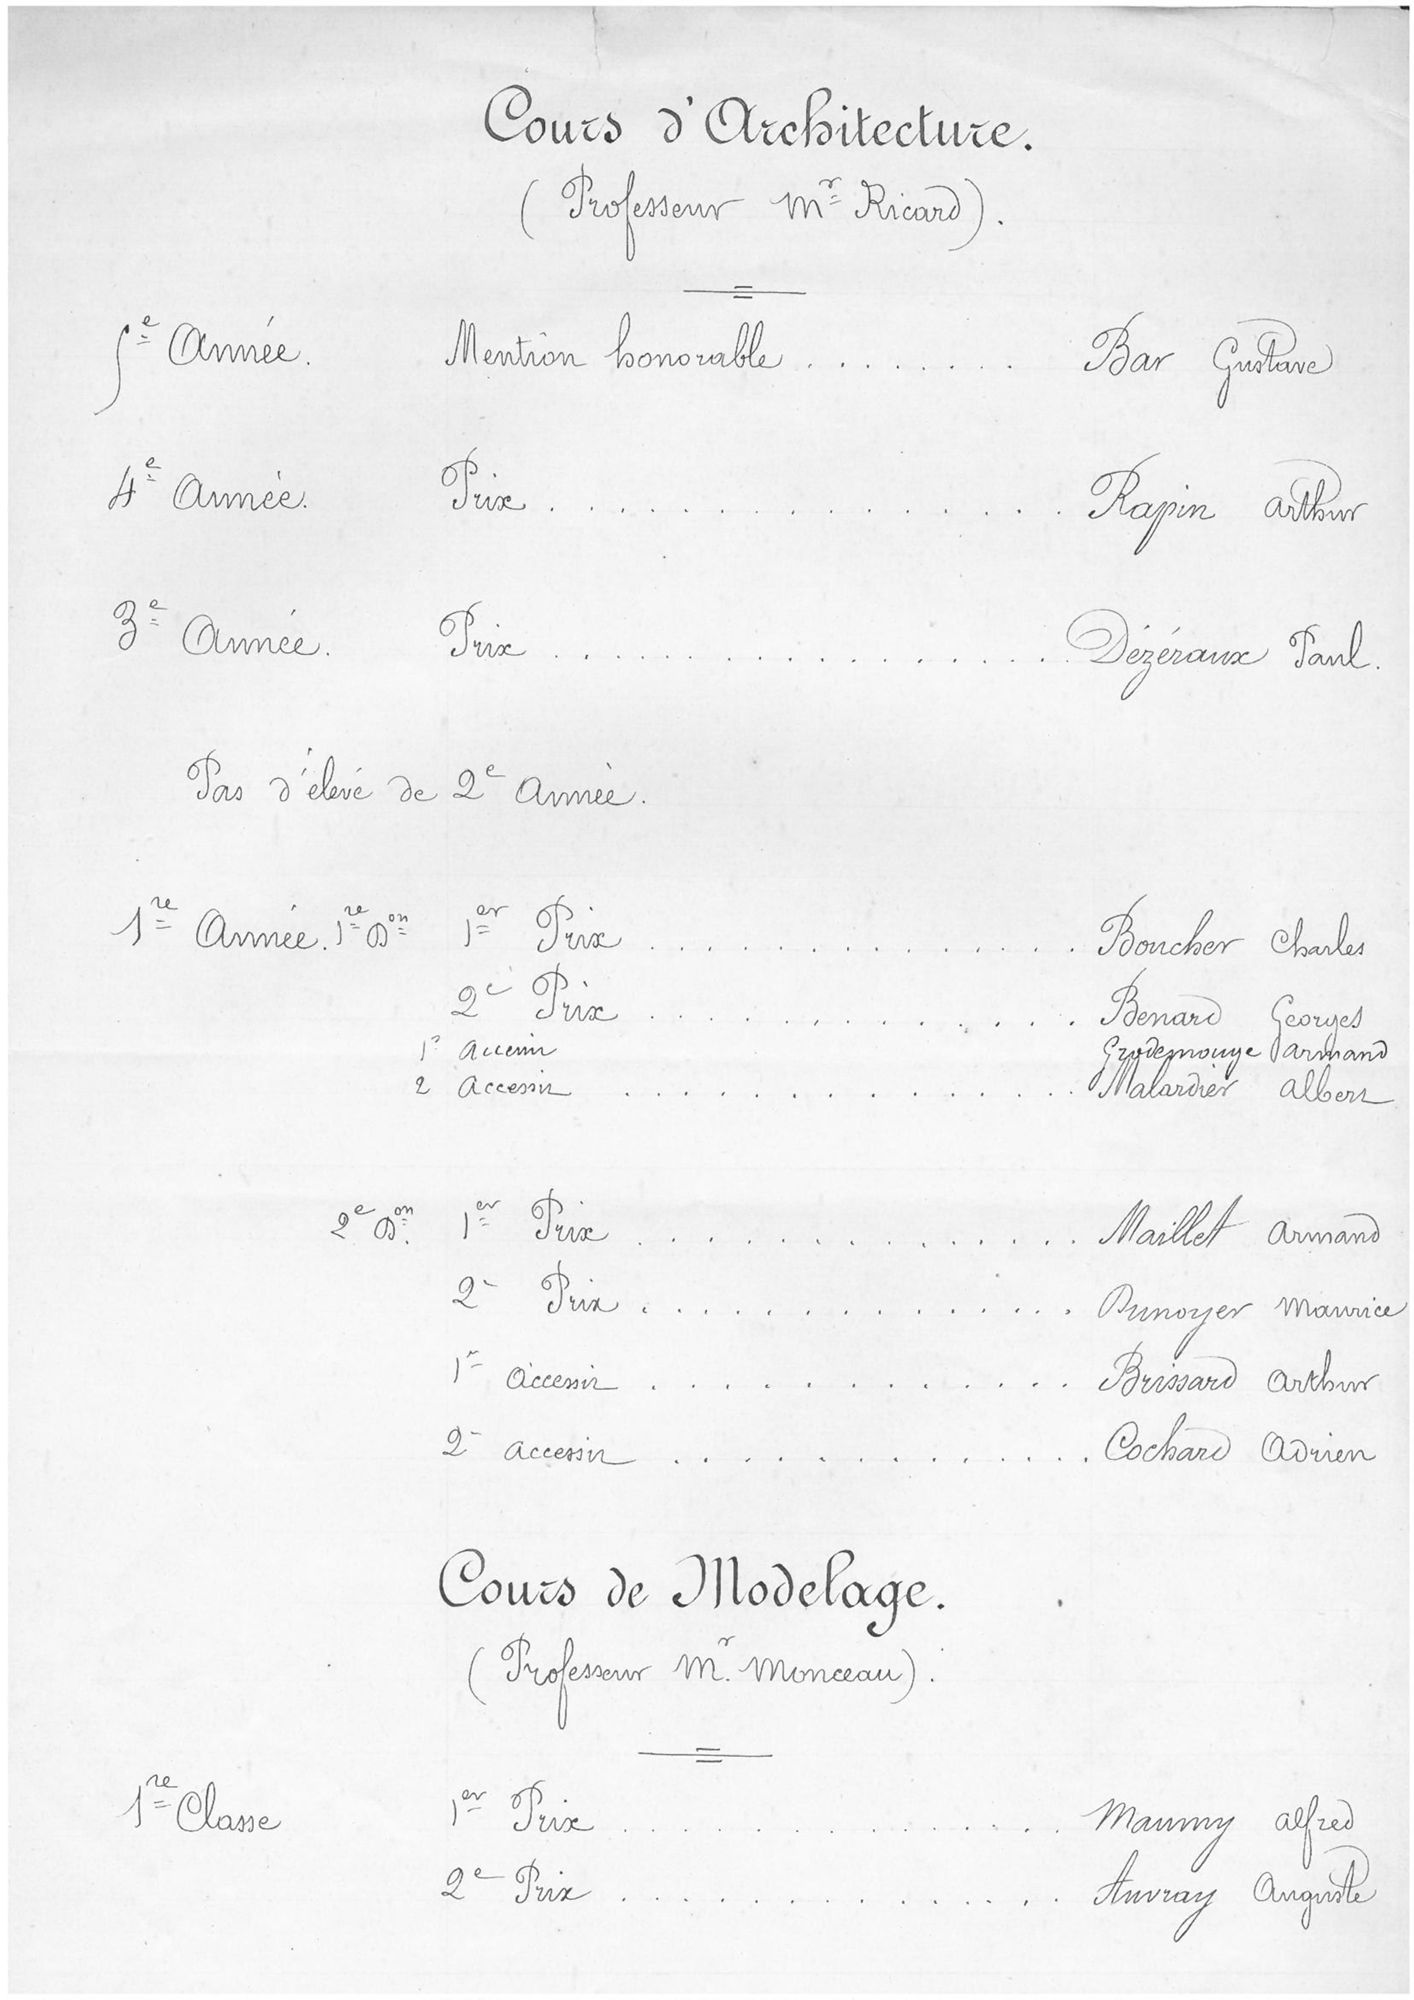 Cours d'Architecture.
(Professeur Mr Ricard).
5e Année. Mention honorable ........ Bar Gustave
4e Année. Prix ................ Rapin Arthur
3e Année. Prix ................ Dézéraux Paul.
Pas d'élevé de 2e Année.
1re Année. 1re Don 1er Prix ............... Boucher Charles
2e Prix .............. Benard Georges
1r Accessit Armand
2 Accessit .............. Malardier Albert
2e Don. 1er Prix .............. Maillet Armand
2e Prix ............... Dunoyer Maurice
1r Accessit ............. Brissard Arthur
2e Accessit ............. Cochard Adrien
Cours de Modelage.
(Professeur Mr. Monceau).
1re Classe 1er Prix ............... Maumy Alfred
2e Prix ............... Auvray Auguste